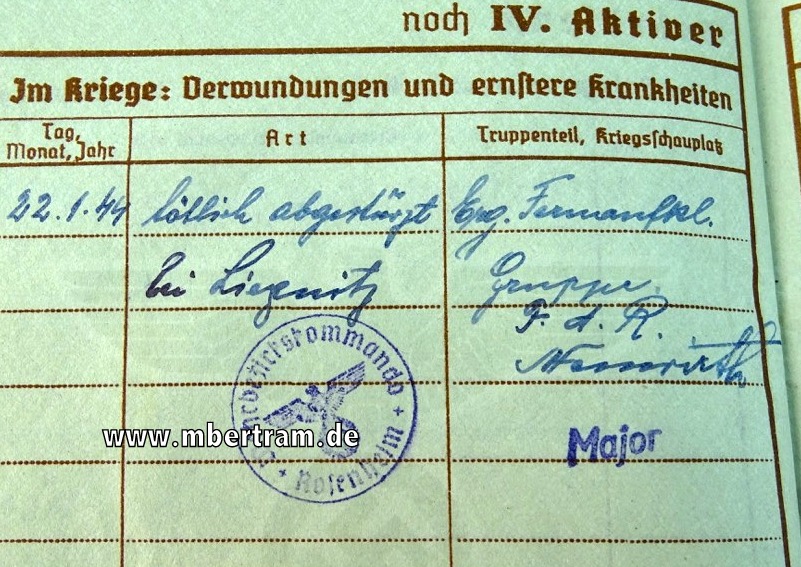 noch IV. Aktiver
Im Kriege: Verwundungen und ernstere Krankheiten
Tag, Monat, Jahr
Art
Truppenteil, Kriegsschauplatz
22.1.44 tötlich abgestürzt Erg. Fernaufkl.
bei Liegnitz Gruppe.
F. d. R.
Wehrbezirkskommando
+ Rosenheim +
www.mbertram.de
Major